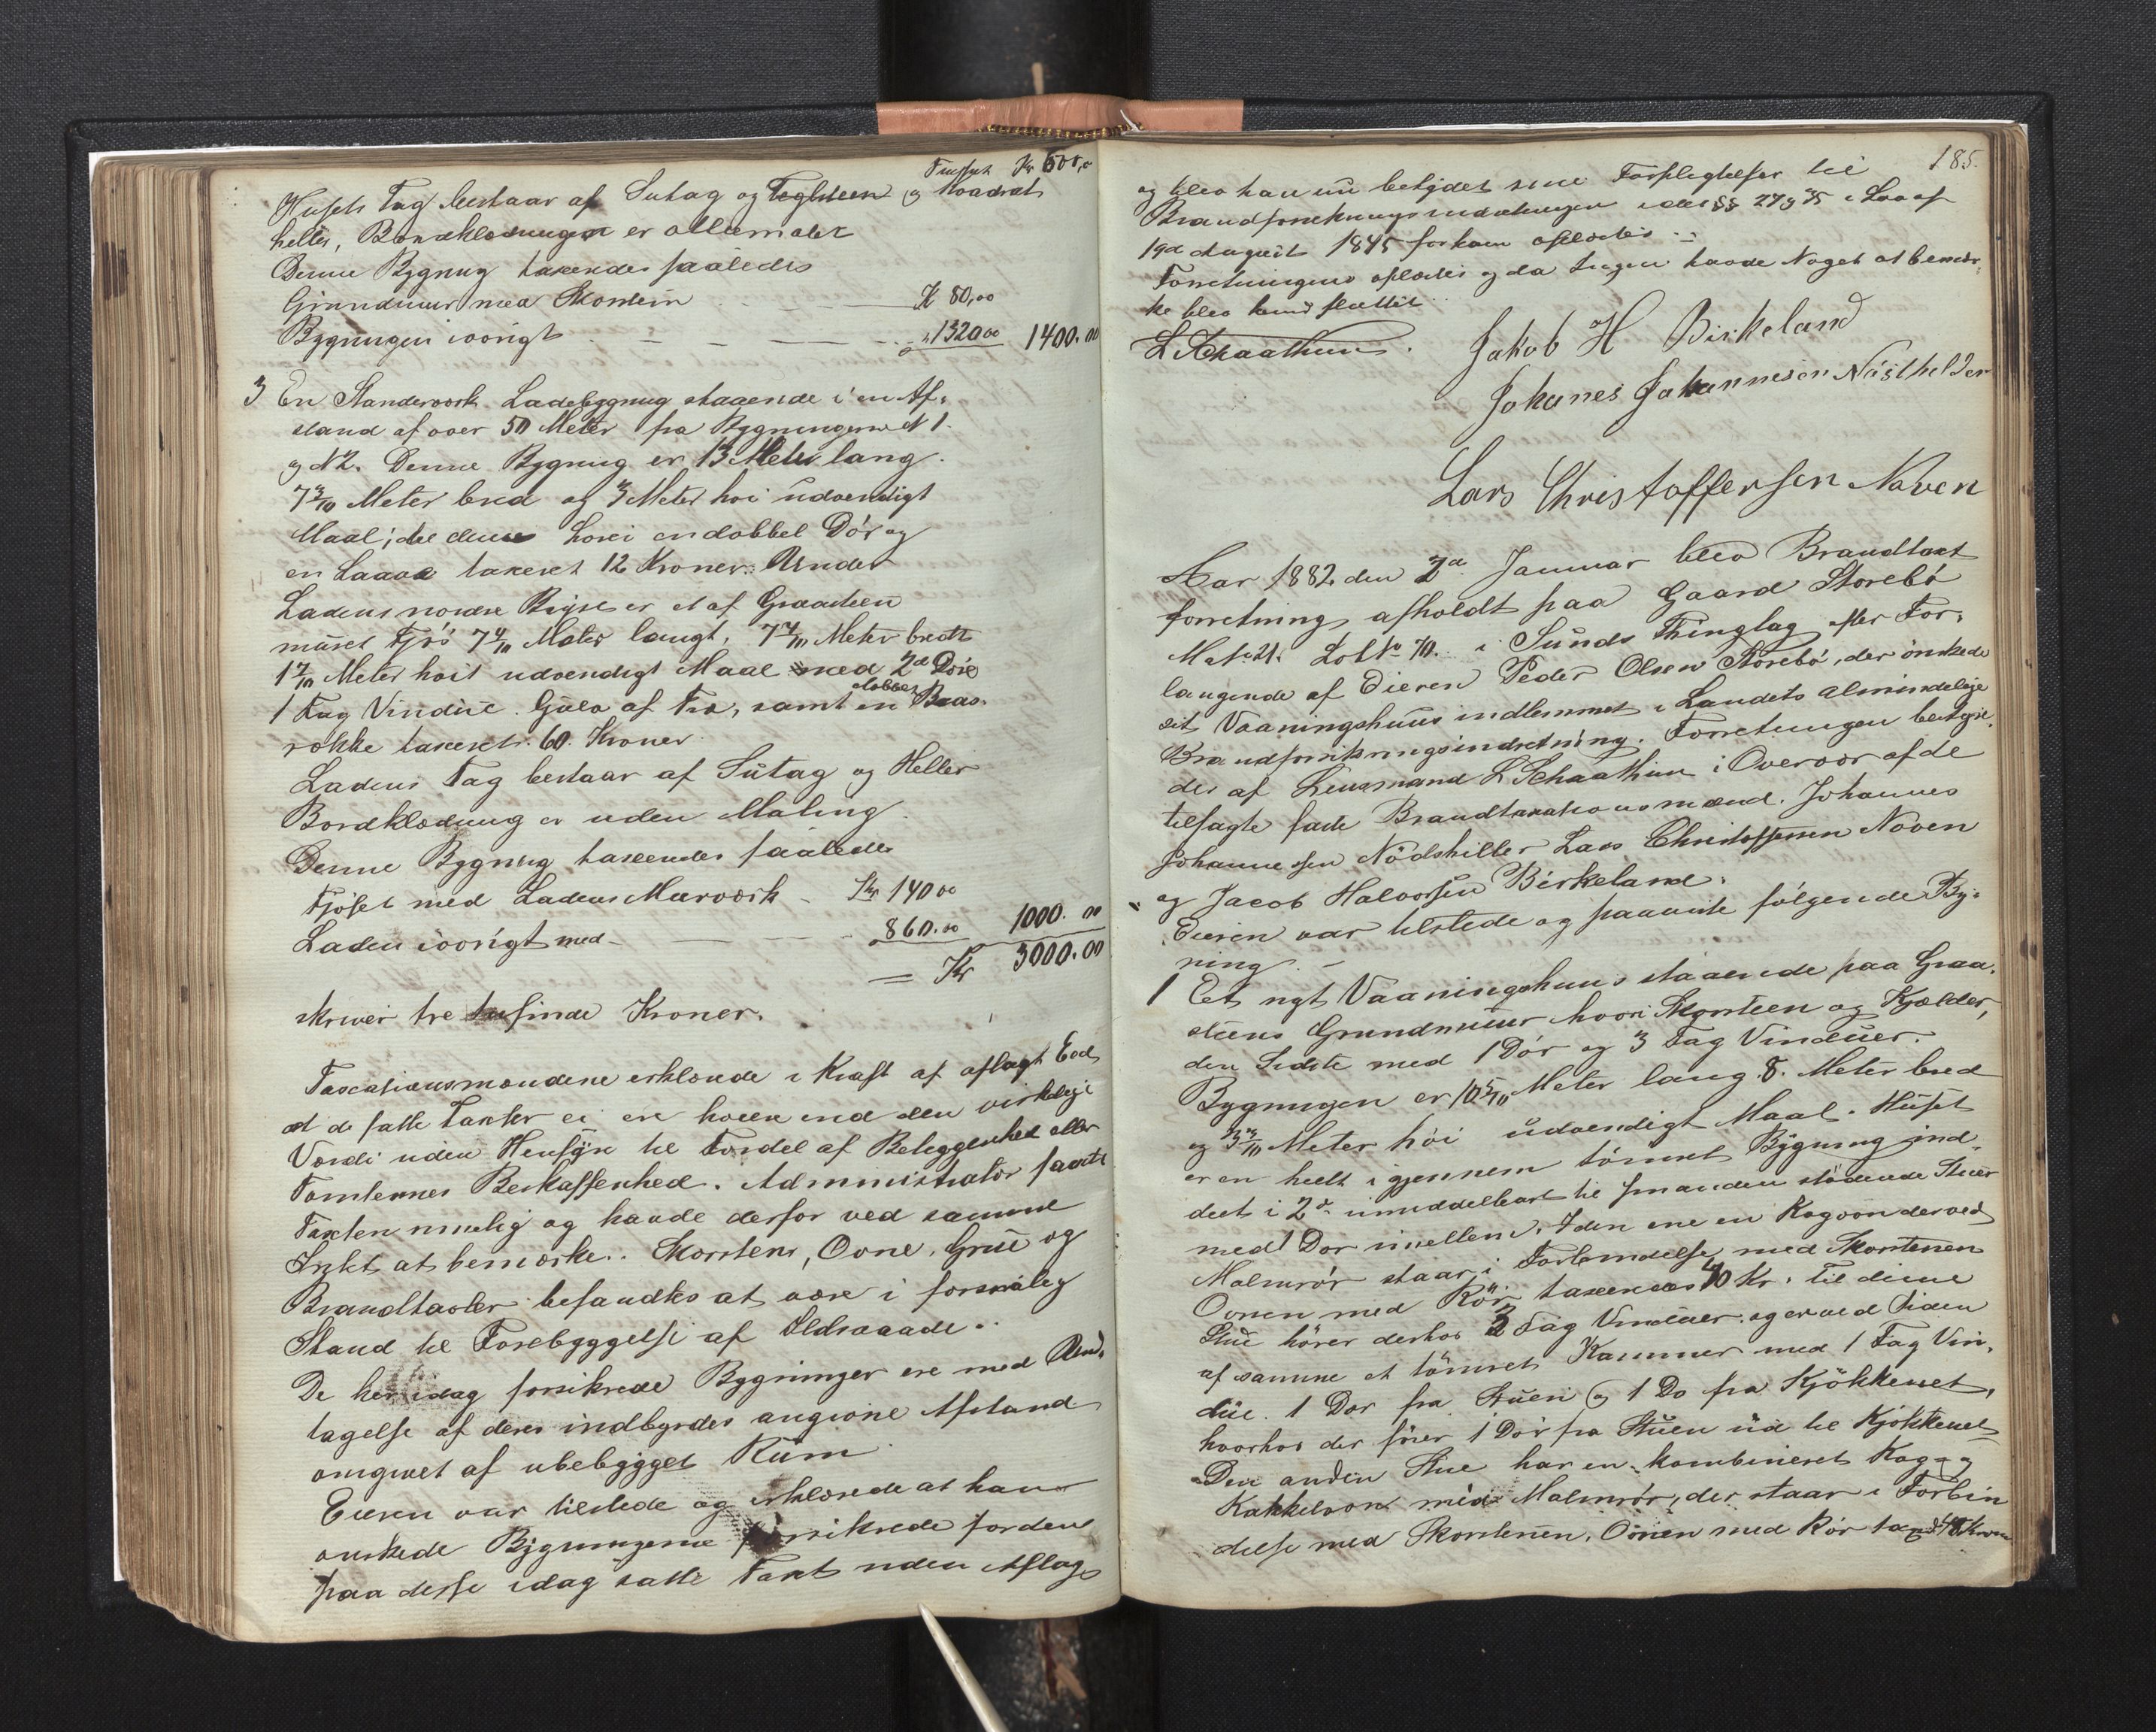 Transport Kr 600,00
Husets Tag bestaar af Sutag og Teglsteen og Kvadrat
heller, Bordklædningen er oliemalet
Denne Bygning taxeredes saaledes
Grundmuur med Skorsten Kr 80,00
Bygningen iøvrigt " 1320 00 1400.00
3 En Standerværk Ladebygning staaende i en Af-
stand af over 50 Meter fra Bygningerne N 1.
og N 2. Denne Bygning er 13 Meter lang.
7 3/10 Meter bred og 3 Meter høi udvendigt
Maal; til denne hører en dobbel Dør og
en Laave taxeret 12 Kroner. Under
Ladens nordre Ende er et af Graasteen
muret Fjøs 7 4/10 Meter langt, 7 4/10 Meter bredt
1 7/10 Meter høit udvendigt Maal med 2de Døre
1 Fag Vindue. Gulv af Træ, samt en dobbel Baas-
række taxeret 60 Kroner.
Ladens Tag bestaar af Sutag og Heller
Bordklædning er uden Maling.
Denne Bygning taxeredes saaledes
Fjøset med Ladens Murværk Kr 140 00
Laden iøvrigt med 860.00 1000.00
= Kr 3000.00
skriver tre tusinde Kroner.
Taxationsmændene erklærede i Kraft af aflagt Eed
at de satte Taxter ei ere høiere end den virkelige
Værdi uden Hensyn til Fordel af Beliggenhed eller
Tomternes Beskaffenhed. Administrator fandt
Taxten rimelig og havde derfor ved samme
Intet at bemærke. Skorstene, Ovne, Grue og
Brandtavler befandtes at være i forsvarlig
Stand til Forebyggelse af Ildsvaade.
De her idag forsikrede Bygninger ere med Und-
tagelse af deres indbyrdes angivne Afstand
omgivet af ubebygget Rum.
Eieren var tilstede og erklærede at han
ønskede Bygningerne forsikrede for den
paa disse idag satte Taxt uden Afslag
185.
og blev han nu betydet sine Forpligtelser til
Brandforsikringsindretningen efter §§ 27 og 35 i Lov af
19de August 1845 for ham oplæstes
Forretningen oplæstes og da Ingen havde Noget at bemær-
ke blev den sluttet
L Skaathun. Jakob H Birkeland
Johanes Johannesen Nästhelder
Lars Christoffersen Naven
Aar 1882 den 2den Januar blev Brandtaxt
forretning afholdt paa Gaard Storebø
Mat. 21. Løb No 70. i Sunds Thinglag efter For-
langende af Eieren Peder Olsen Storebø, der ønskede
sit Vaaningshuus indlemmet i Landets almindelige
Brandforsikringsindretning. Forretningen bestyre-
des af Lensmand L Skaathun i Overvær af de
tilsagte faste Brandtaxationsmænd. Johannes
Johannessen Nödshilter Lars Christoffersen Noven
og Jacob Halvorsen Birkeland.
Eieren var tilstede og paaviste følgende Byg-
ning.
1 Eet nyt Vaaningshuus staaende paa Graa-
steens Grundmuur hvori Skorsteen og Kjælder,
den Sidste med 1 Dør og 3 Fag Vinduer.
Bygningen er 10 5/10 Meter lang. 8. Meter bred
og 3 3/10 Meter høi udvendigt Maal. Huset
er en heelt igjennem tømret Bygning ind-
deet i 2de umiddelbart til hinanden stødende Stuer
med 1 Dør imellem. I den ene en Kogovn der ved
Malmrør staar i Forbindelse med Skorstenen
Ovnen med Rør taxeredes 40 Kr. Til denne
Stue hører derhos 3 Fag Vinduer, og er ved Siden
af samme et tømret Kammer med 1 Fag Vin-
due. 1 Dør fra Stuen og 1 Do fra Kjøkkenet,
hvorhos der fører 1 Dør fra Stuen ud til Kjøkkenet
Den anden Stue har en kombineret Kog- og
Kakkelovn med Malmrør, der staar i Forbin
delse med Skorstenen. Ovnen med Rør taxeredes Kroner